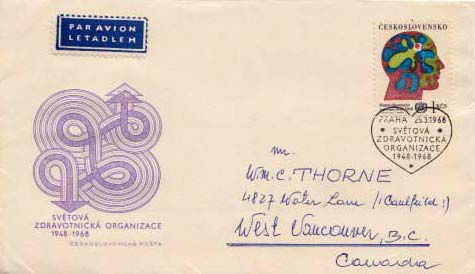 PAR AVION
LETADLEM
ČESKOSLOVENSKO
1 KČS
PRAHA 25.3.1968
SVĚTOVÁ
ZDRAVOTNICKÁ
ORGANIZACE
1948-1968
SVĚTOVÁ
ZDRAVOTNICKÁ ORGANIZACE
1948-1968
ČESKOSLOVENSKÁ POŠTA
Mr.
Wm. C. THORNE
4827 Water Lane /:Caulfeild:/
West Vancouver, B.C.
Canada